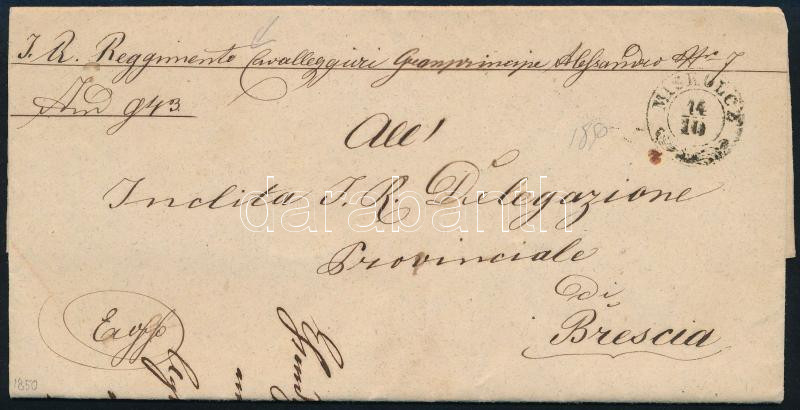 I. R. Reggimento Cavalleggieri Granprincipe Alessandro No 7
And 943.
MISKOLCZ
14
10
1850
All'
Inclita I. R. Delegazione
Provinciale
di
Brescia
Exoffo
darabanth
1850